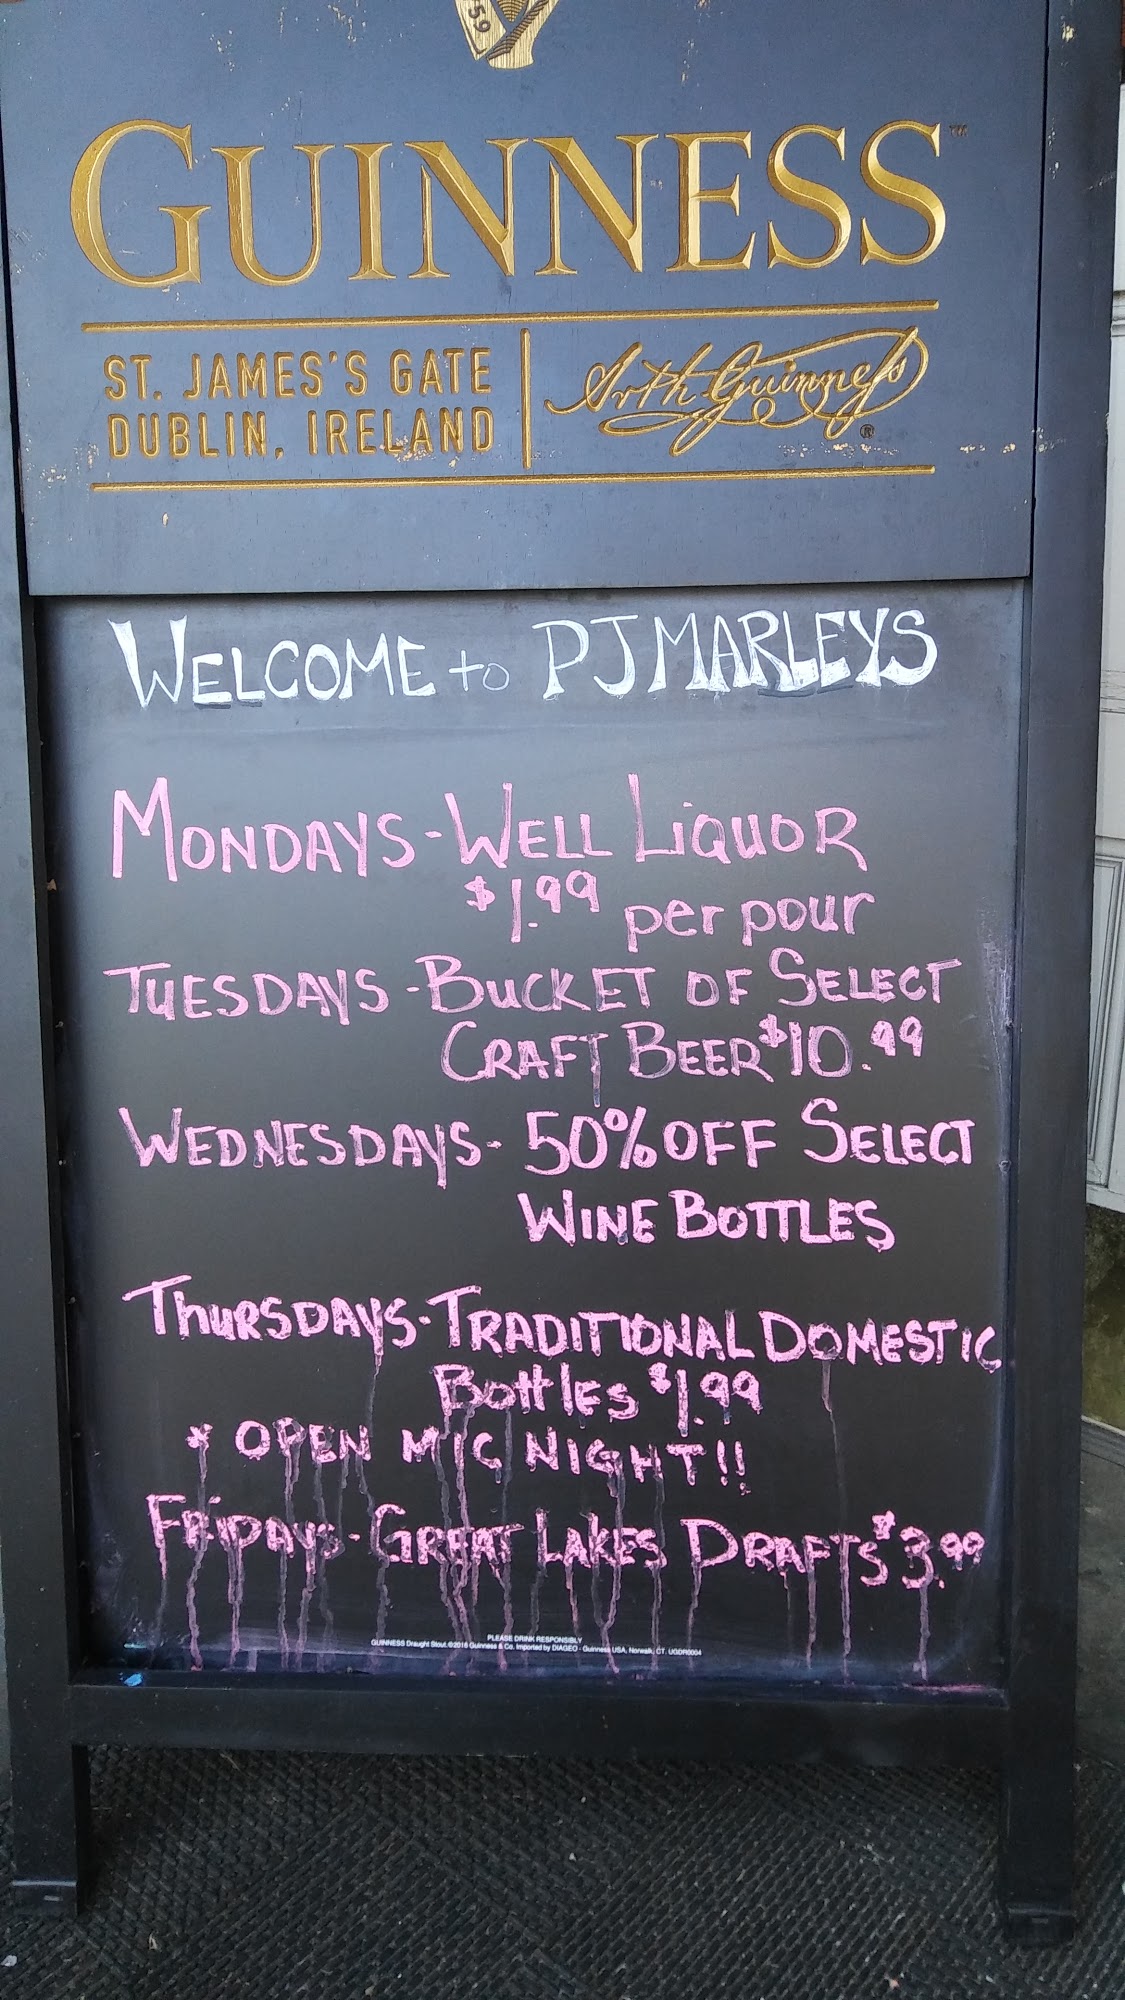 59
GUINNESS™
ST. JAMES'S GATE
DUBLIN, IRELAND
Arth Guinness®
WELCOME to PJ MARLEYS
MONDAYS - WELL LIQUOR
$1.99 per pour
TUESDAYS - BUCKET OF SELECT
CRAFT BEER $10.99
WEDNESDAYS - 50% OFF SELECT
WINE BOTTLES
THURSDAYS - TRADITIONAL DOMESTIC
BOttlEs $1.99
* OPEN MIC NIGHT!!
FRIDAYS - GREAT LAKES DRAFTS $3.99
PLEASE DRINK RESPONSIBLY
GUINNESS Draught Stout. ©2016 Guinness & Co. Imported by DIAGEO - Guinness USA, Norwalk, CT. UGDR0004